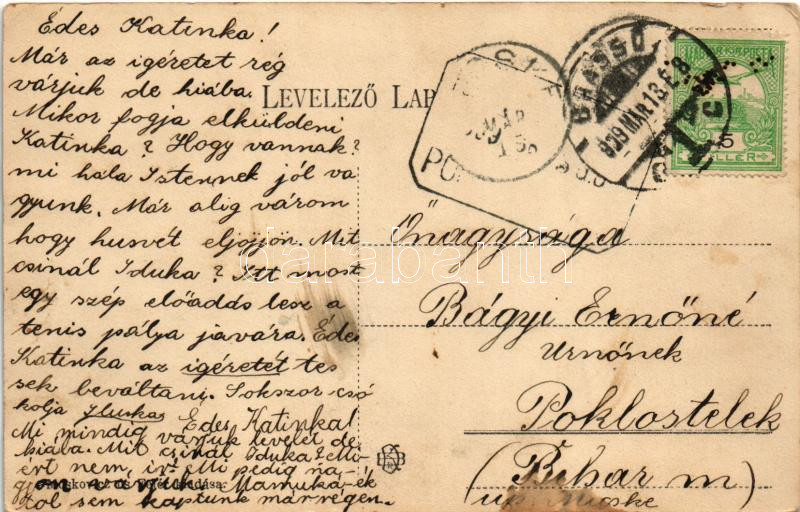 Édes Katinka!
Már az igéretet rég
várjuk de hiába.
Mikor fogja elküldeni
Katinka? Hogy vannak?
mi hála Istennek jól va
gyunk. Már alig várom
hogy husvét eljöjjön. Mit
csinál Iduka? Itt most
egy szép előadás lesz a
tenis pálya javára. Édes
Katinka az igéretét tes
sek beváltani. Sokszor csó
kolja Iluska
Édes Katinka!
Mi mindig várjuk levelét de
hiába. Mit csinál Iduka? Mi-
ért nem ir? Mi pedig na-
gyon Mamuka-ék
tól sem kaptunk már régen.
kiadása.
LEVELEZŐ LAP
BRASSÓ
909 MÁR 13
MÁR 15
MAGYAR KIR. POSTA
5
FILLÉR
darabanth
Őnagysága
Bágyi Ernőné
Urnőnek
Poklostelek
(Bihar m)
up. Micske